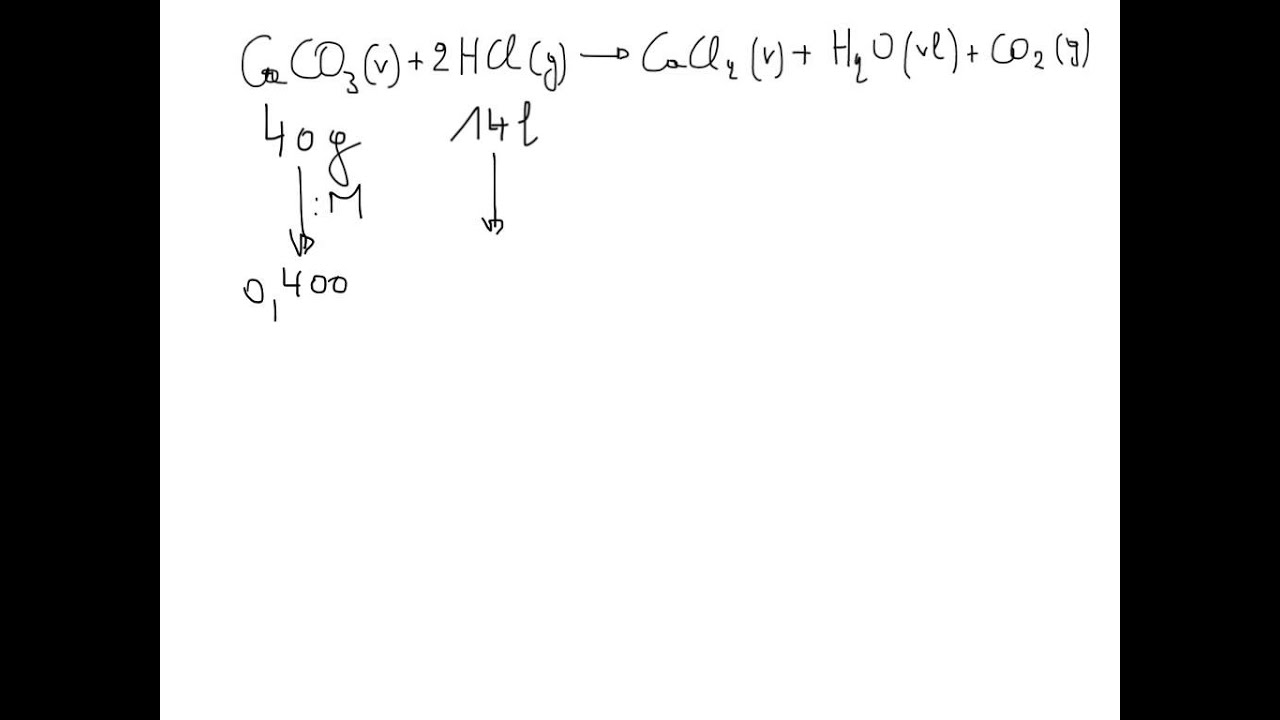 CaCO₃(v) + 2HCl(g) → CaCl₂(v) + H₂O(vl) + CO₂(g)
40 g 14 l
:M
0,400